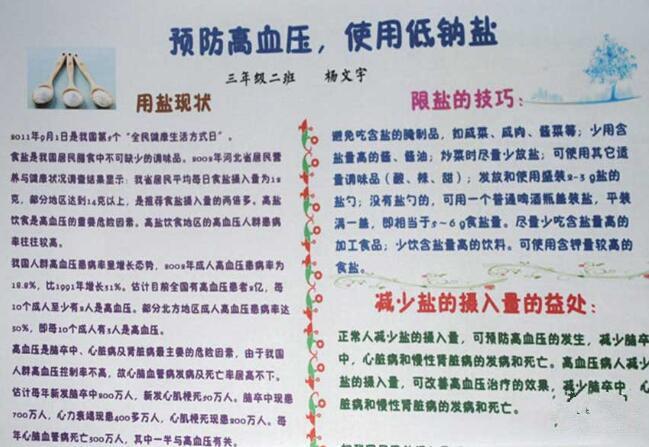 预防高血压，使用低钠盐
三年级二班 杨文宇
用盐现状
2011年9月1日是我国第5个“全民健康生活方式日”。
食盐是我国居民膳食中不可缺少的调味品。2002年河北省居民营
养与健康状况调查结果显示：我省居民平均每日食盐摄入量为12
克，部分地区达到14克以上，是推荐食盐摄入量的两倍多。高盐
饮食是高血压的重要危险因素。高盐饮食地区的高血压人群患病
率往往较高。
我国人群高血压患病率呈增长态势，2002年成人高血压患病率为
18.8%，比1991年增长31%。估计目前全国有高血压患者2亿，每
10个成人至少有2人是高血压。部分北方地区成人高血压患病率达
30%，即每10个成人有3人是高血压。
高血压是脑卒中、心脏病及肾脏病最主要的危险因素，由于我国
人群高血压控制率不高，故心脑血管病发病及死亡率居高不下。
估计每年新发脑卒中200万人，新发心肌梗死50万人。脑卒中现患
700万人，心力衰竭现患400多万人，心肌梗死现患200万人。每
年心脑血管病死亡300万人，其中一半与高血压有关。
限盐的技巧：
避免吃含盐的腌制品，如咸菜、咸肉、酱菜等；少用含
盐量高的酱、酱油；炒菜时尽量少放盐；可使用其它适
量调味品（酸、辣、甜）；发放和使用盛装2-3g盐的
盐勺；没有盐勺的，可用一个普通啤酒瓶盖装盐，平装
满一盖，即相当于5~6g食盐量。尽量少吃含盐量高的
加工食品；少饮含盐量高的饮料。可使用含钾量较高的
食盐。
减少盐的摄入量的益处：
正常人减少盐的摄入量，可预防高血压的发生，减少脑卒
中，心脏病和慢性肾脏病的发病和死亡。高血压病人减少
盐的摄入量，可改善高血压治疗的效果，减少脑卒中 心
脏病和慢性肾脏病的发病和死亡。